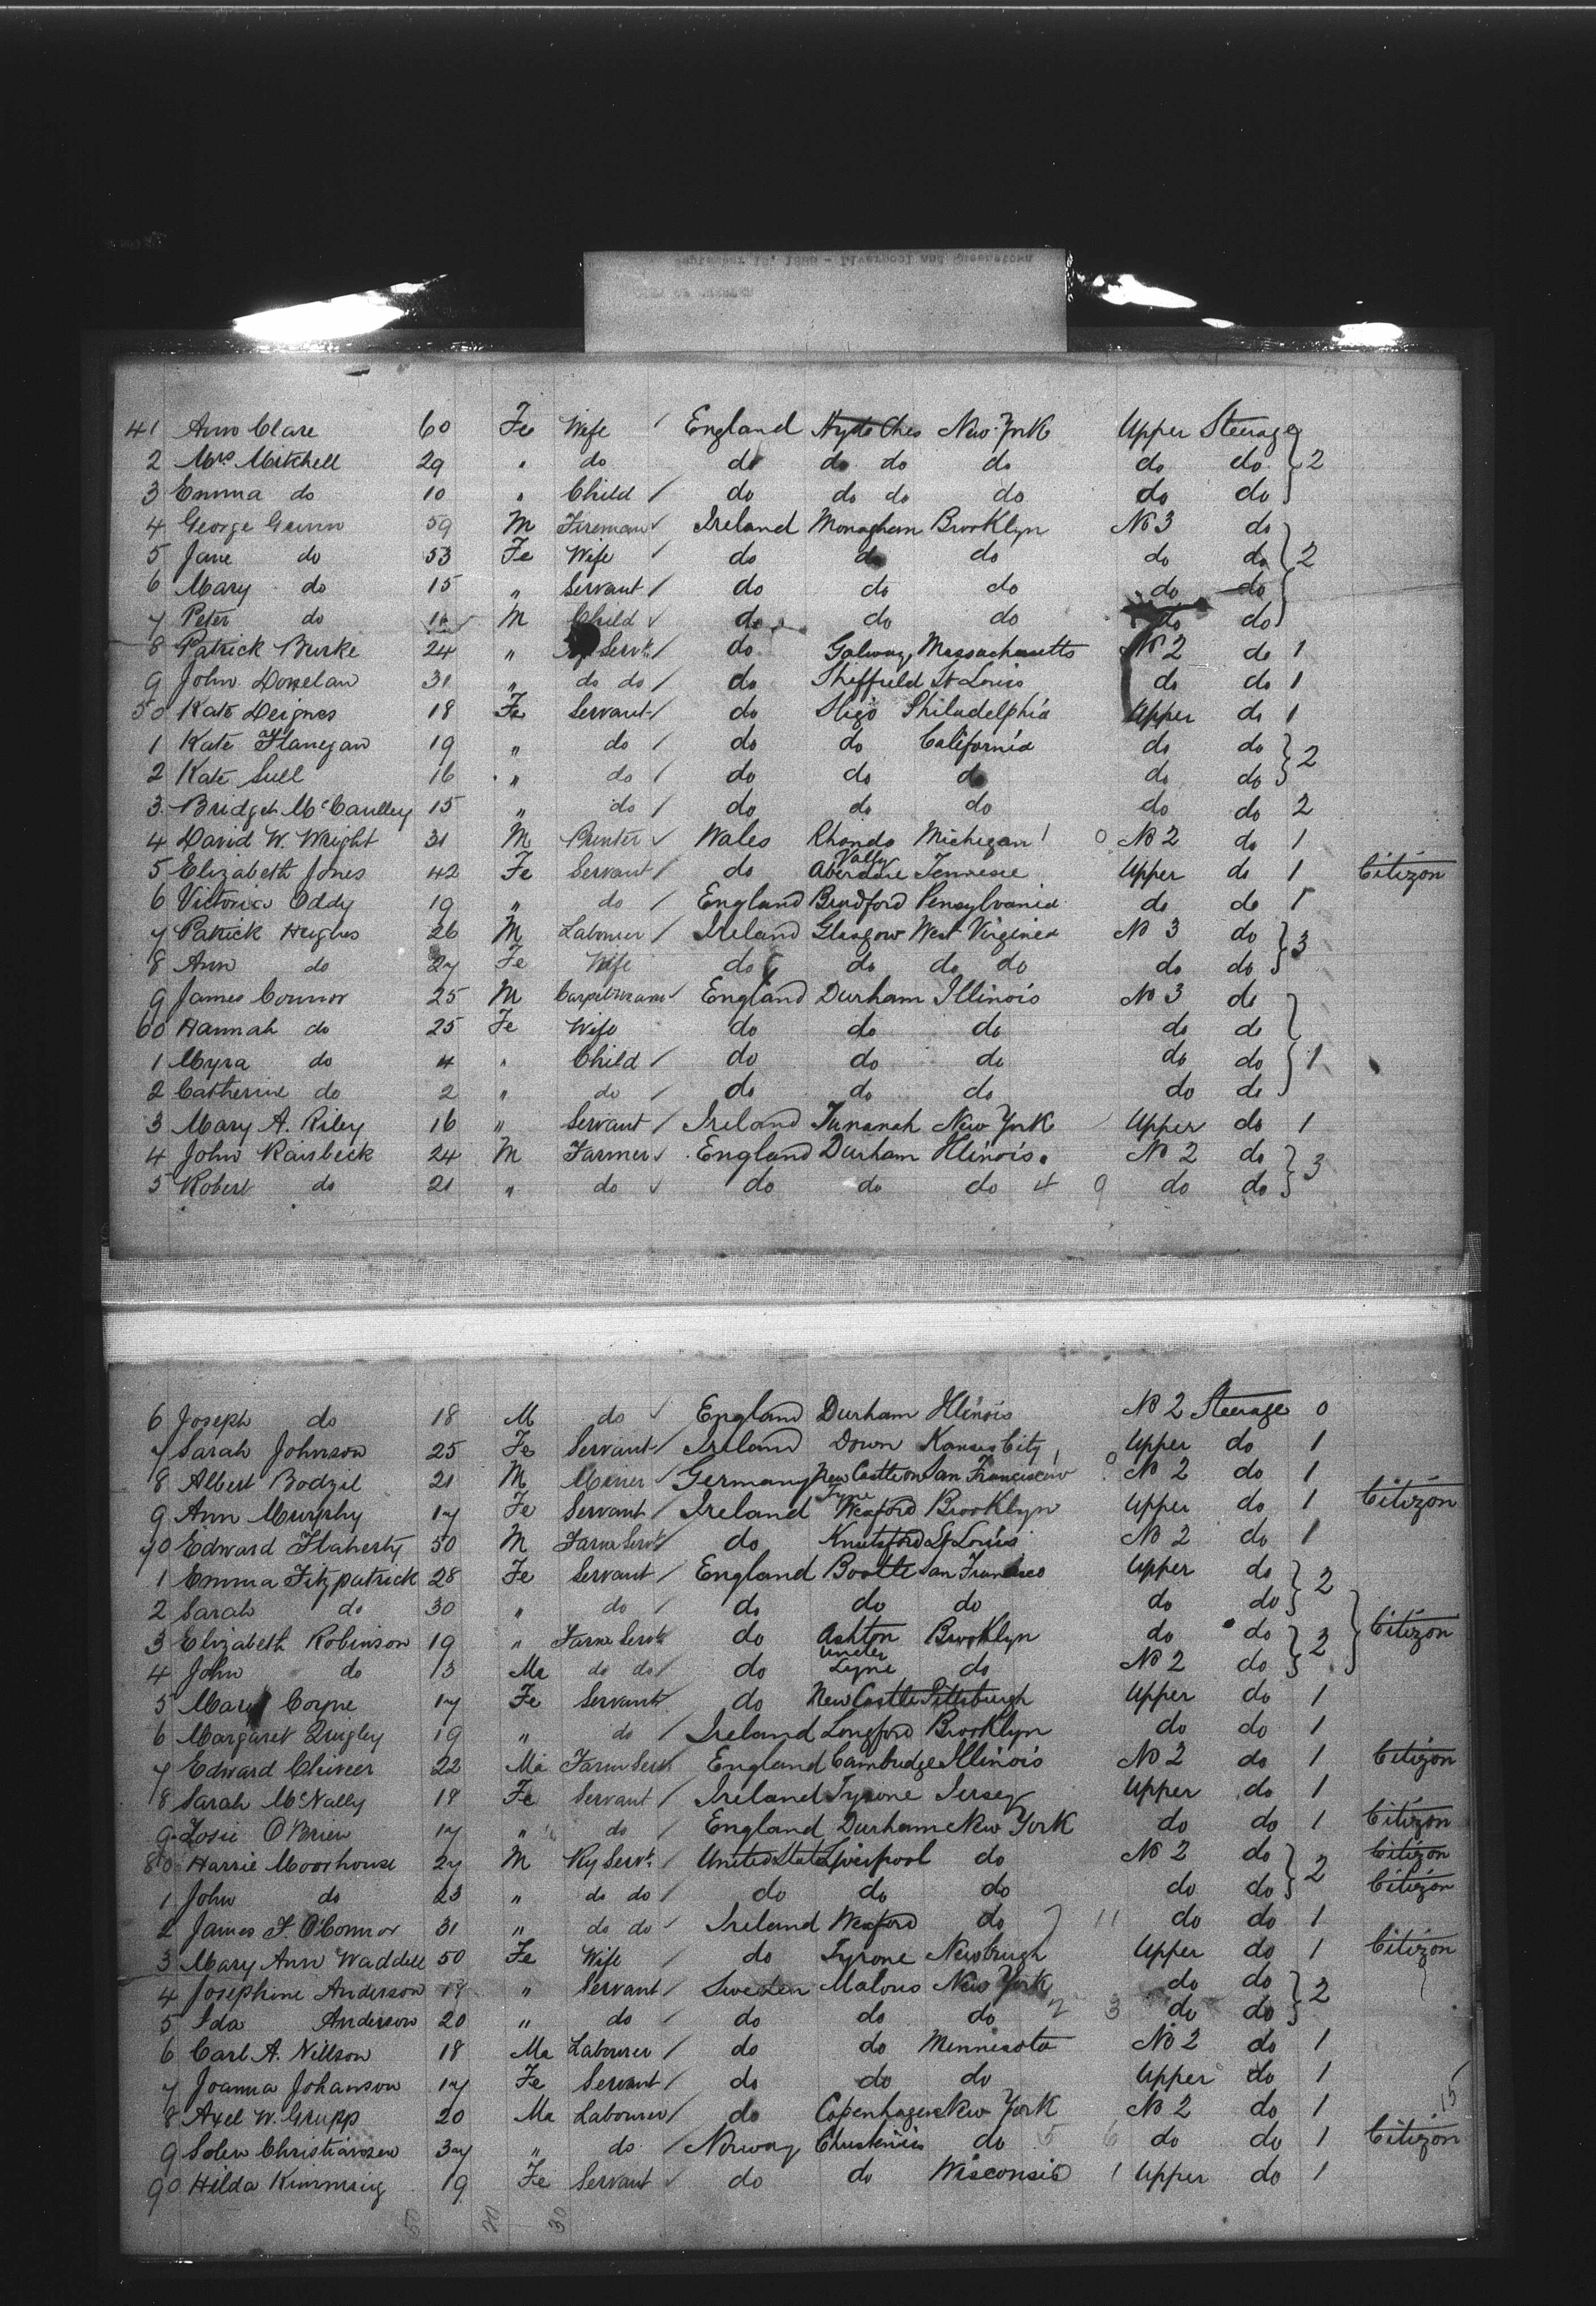 41 Ann Clare 60 Fe Wife / England Hyde Ches New York Upper Steerage
2 Mrs Mitchell 29 " do do do do do do do } 2
3 Emma do 10 " Child / do do do do do do
4 George Gunn 59 M Fireman / Ireland Monagham Brooklyn No 3 do
5 Jane do 53 Fe Wife / do do do do do } 2
6 Mary do 15 " Servant / do do do do do
7 Peter do M Child / do do do do do
8 Patrick Burke 24 " Servt / do Galway Massachusetts No 2 do 1
9 John Donelan 31 " do do / do Sheffield St Louis do do 1
50 Kate Deignes 18 Fe Servant / do Sligo Philadelphia Upper do 1
1 Kate Flanegan 19 " do / do do California do do } 2
2 Kate Sull 16 " do / do do do do do
3 Bridget McCaulley 15 " do / do do do do do 2
4 David W. Wright 31 M Printer / Wales Rhondo Michigan 0 No 2 do 1
Valley
5 Elizabeth Jones 42 Fe Servant / do Aberdare Tennesie Upper do 1 Citizen
6 Victoria Oddy 19 " do / England Bradford Pensylvania do do 1
7 Patrick Hughes 26 M Labourer / Ireland Glasgow West Virginia No 3 do } 3
8 Ann do 27 Fe Wife do do do do do do
9 James Connor 25 M England Durham Illinois No 3 do
60 Hannah do 25 Fe Wife do do do do do
1 Myra do 4 " Child / do do do do do } 1
2 Catherine do 2 " do / do do do do do
3 Mary A. Riley 16 " Servant / Ireland New York Upper do 1
4 John Rairbeck 24 M Farmer / England Durham Illinois No 2 do } 3
5 Robert do 21 " do / do do do 4 9 do do
6 Joseph do 18 M do / England Durham Illinois No 2 Steerage 0
7 Sarah Johnson 25 Fe Servant / Ireland Down Kansas City Upper do 1
8 Albert Bodzil 21 M Miner / Germany New Castle on San Francisco 0 No 2 do 1
Tyne
9 Ann Murphy 17 Fe Servant / Ireland Wexford Brooklyn Upper do 1 Citizen
70 Edward Flaherty 50 M Farm Servt do Knutsford St Louis No 2 do 1
1 Emma Fitzpatrick 28 Fe Servant / England Bootle San Francisco Upper do } 2
2 Sarah do 30 " do / do do do do do
3 Elizabeth Robinson 19 " Farm Servt do Ashton Brooklyn do do } 2 } Citizen
under
4 John do 13 Ma do do / do Lyne do No 2 do
5 Mary Coyne 17 Fe Servant do New Castle Pittsburgh Upper do 1
6 Margaret Quigley 19 " do / Ireland Longford Brooklyn do do 1
7 Edward Chiveer 22 Ma Farm Servt England Cambridge Illinois No 2 do 1 Citizen
8 Sarah McNally 18 Fe Servant / Ireland Tyrone Jersey Upper do 1
9 Josie O'Brien 17 " do / England Durham New York do do 1 Citizen
80 Harrie Moorhouse 27 M Ry Servt / United States Liverpool do No 2 do } 2 Citizen
1 John do 23 " do do / do do do do do Citizen
2 James F. O'Connor 31 " do do / Ireland Wexford do 7 11 do do 1
3 Mary Ann Waddell 50 Fe Wife / do Tyrone Newburgh Upper do 1 Citizen
4 Josephine Anderson 18 " Servant / Sweden Malous New York do do } 2
5 Ida Anderson 20 " do / do do do 2 3 do do
6 Carl A. Nillson 18 Ma Labourer / do do Minnisota No 2 do 1
7 Joanna Johanson 17 Fe Servant / do do do Upper do 1
8 Axel W. Grupp 20 Ma Labourer / do Copenhagen New York No 2 do 1 15
9 Solen Christiansen 37 " do / Norway do 5 6 do do 1 Citizen
90 Hilda 19 Fe Servant / do do Wisconsin 1 Upper do 1
50 20 30